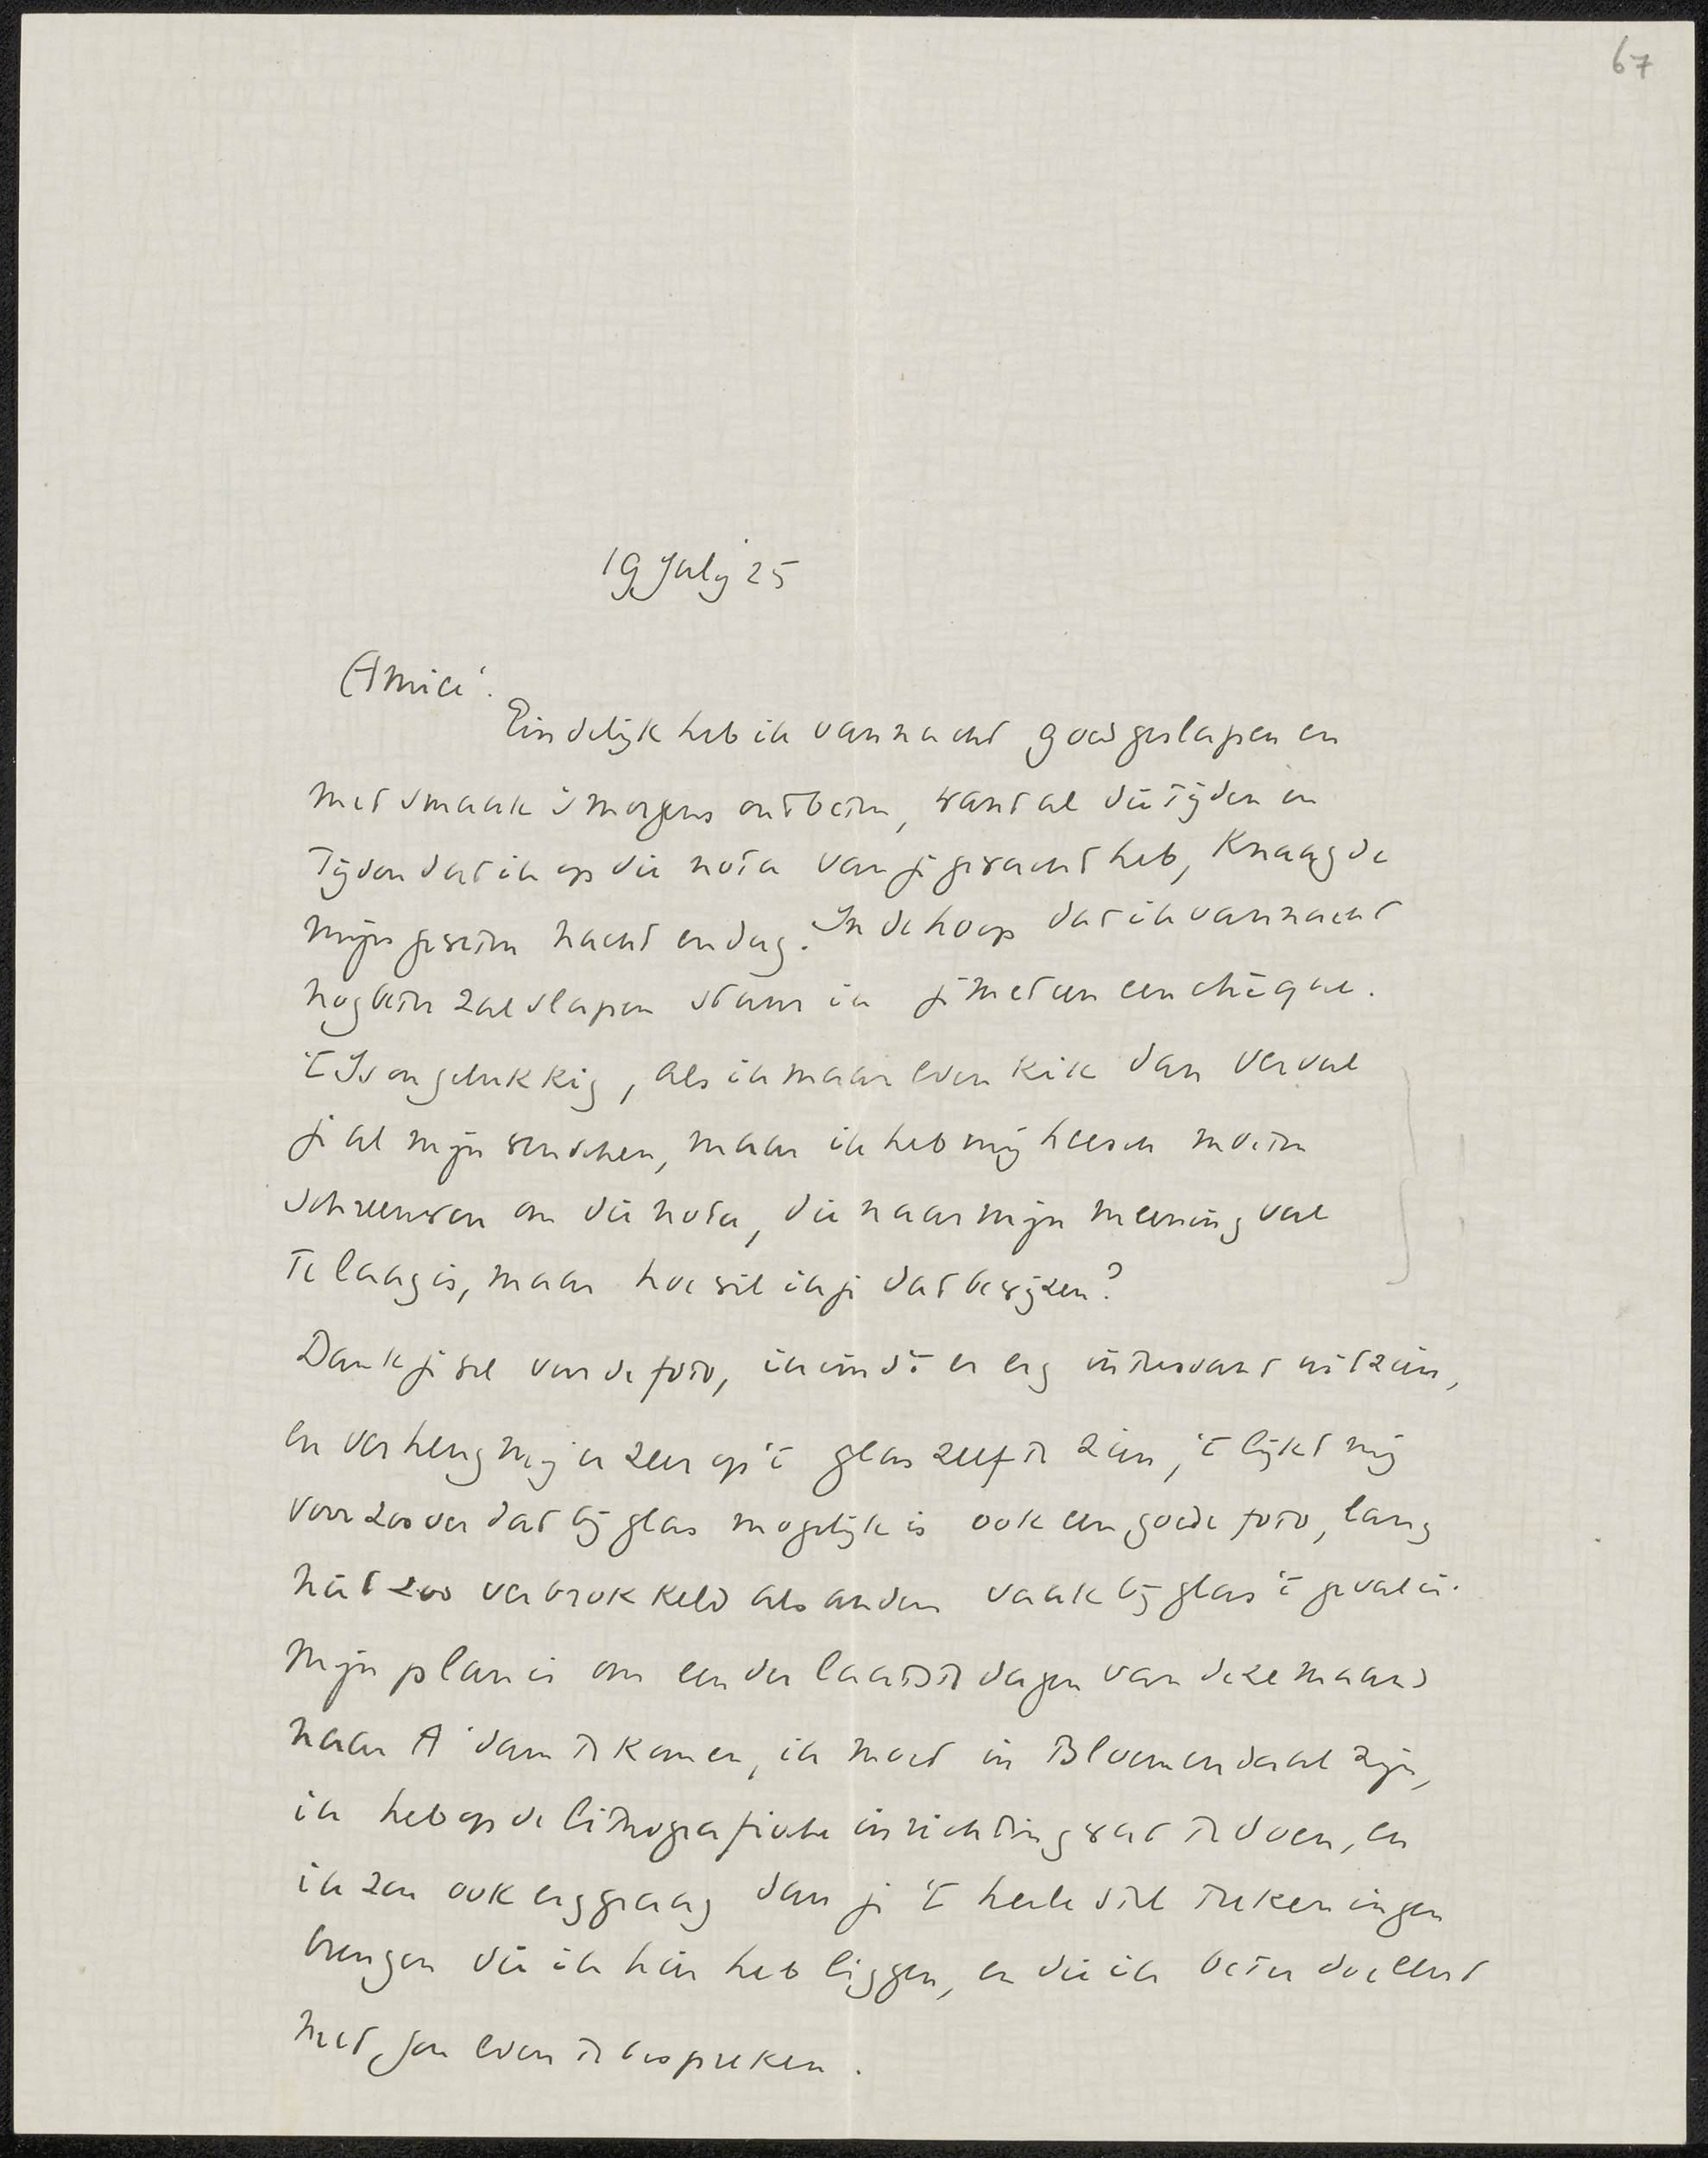 67
19 July 25
Amice.
Eindelijk heb ik vannacht goed geslapen en
met smaak 's morgens ontbeten, want al die tijden en
tijden dat ik op die nota van je gewacht heb, knaagde
mijn geweten nacht en dag. In de hoop dat ik vannacht
nog beter zal slapen stuur ik je meteen een chèque.
't Is ongelukkig, als ik maar even kik dan vervul
je al mijn wenschen, maar ik heb mij heesch moeten
schreeuwen om die nota, die naar mijn meening veel
te laag is, maar hoe wil ik je dat bewijzen?
Dank je wel voor de foto, ik vind 't er erg interesant uitzien,
en verheug mij er zeer op 't glas zelf te zien, 't lijkt mij
voor zoover dat bij glas mogelijk is ook een goede foto, lang
niet zoo verbrokkeld als anders vaak bij glas 't geval is.
Mijn plan is om een der laatste dagen van deze maand
naar A'dam te komen, ik moet in Bloemendaal zijn,
ik heb op de lithografische inrichting wat te doen, en
ik zou ook erg graag dan je 't heele stel tekeningen
brengen die ik hier heb liggen, en die ik beter doe eerst
met jou even te bespreken.